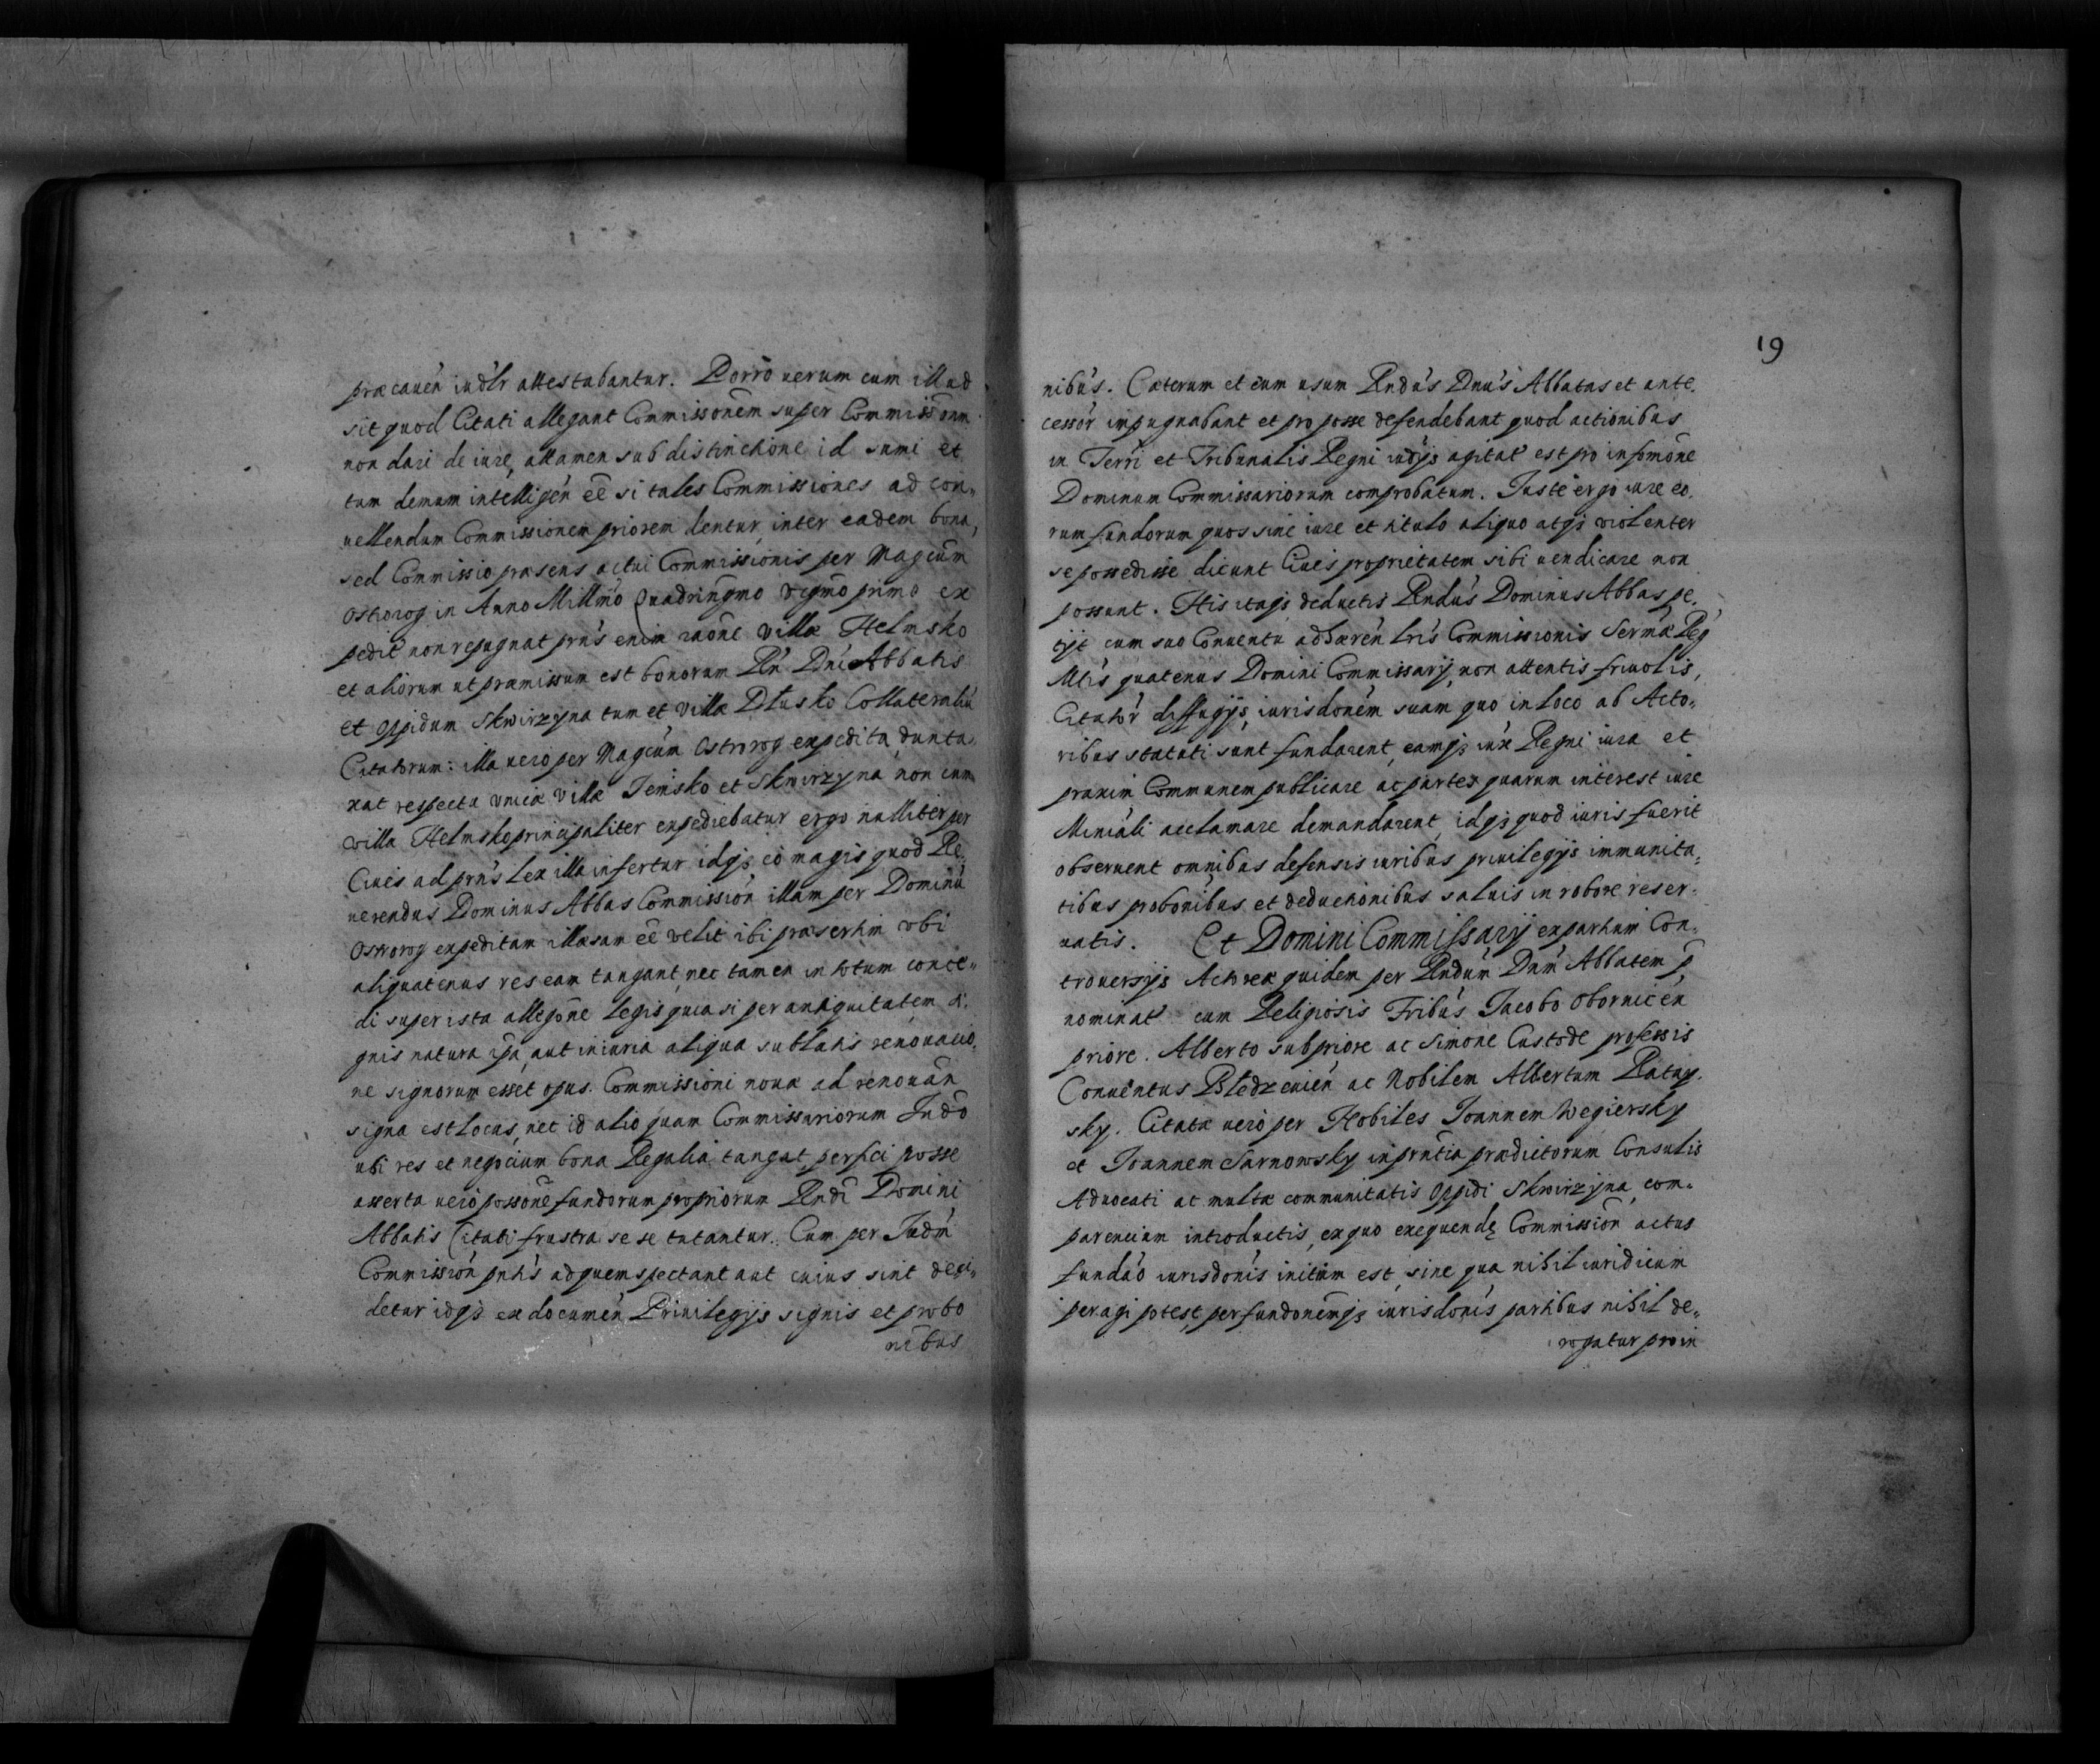 præcauen̄ iudr̄ attestabantur. Porrò uerum cum illud
sit quod Citati allegant Commissionēm super Commissionm̄
non dari de iure, attamen sub distinctione id sumi et
tum demum intelligen̄ eē si tales Commissiones ad con„
uellendum Commissionem priorem dentur, inter eadem bona,
sed Commissio præsens actui Commissionis per Magcūm
Ostrorog in Anno Millmō Quadringmo Vigmō primo ex
pedit̄ non repugnat prn̄s enim raōne villæ Helmsko
et aliorum ut præmissum est bonorum Rn̄ Dnī Abbatis
et Oppidum Skwirzyna tum et Villæ Dłusko Collateraliū
Citatorum: illa uero per Magcūm Ostrorog expedita dunta,
xat respectu vnicæ Villæ Jemsko et Skwirzyna, non cum
villa Helmsko principaliter expediebatur ergo nulliter per
Ciues ad prn̄s lex illa infertur idq3 eò magis quod Re„
uerendus Dominus Abbas Commission̄ illam per Dominū
Ostrorog expeditam illæsam eē velit ibi præsertim vbi
aliquatenus res eam tangant, nec tamen in totum conce„
di super ista allegōne legis quia si per antiquitatem si„
gnis natura ip̄a, aut iniuria aliqua sublatis renouatio,
ne signorum esset opus. Commissioni nouæ ad renouān
signa est locus, nec id alio quam Commissariorum Iudō
ubi res et negocium bona Regalia tangat perfici posse
asserta uerò possonē fundorum propriorum Rndī Domini
Abbatis Citati frustra se se tutantur. Cum per Iudm̄
Commission̄ pntīs ad quem spectant aut cuius sint deci„
detur idq3 ex documen̄ Priuilegijs signis et probo
nibus
19
nibūs. Cæterum et eum usum Rndūs Dnūs Abbatas et ante„
cessōr impugnabant et pro posse defendebant quod actionibus
in Terrī et Tribunalis Regni iudijs agitat̄ est pro infomōne
Dominum Commissariorum comprobatum. Iuste ergo iure eo,
rum fundorum quos sine iure et titulo aliquo atq3 violenter
se possedisse dicunt Ciues proprietatem sibi uendicare non
possunt. His itaq3 deductis Rndūs Dominus Abbas pe„
tijt cum suo Conuentu adhæren̄ lrīs Commissionis Sermæ Reg̃
Mtīs quatenus Domini Commissarij, non attentis friuolis,
Citatōr diffugijs, iurisdonēm suam quo in loco ab Acto„
ribus statuti sunt fundarent, eamq3 iūx Regni iura et
praxim Communem publicare ac partes quarum interest iure
Miniāli acclamare demandarent, idq3 quod iuris fuerit
obseruent omnibus defensis iuribus priuilegijs immunita„
tibus probonībus et deductionibus saluis in robore reser„
uatis. Et Domini Commissarij ex partium Con„
trouersijs Actoreæ quidem per Rndūm Dnm̄ Abbatem p̄
nominat̄ cum Religiosis Frībus Jacobo Obornicen̄
priore. Alberto subpriore ac Simone Custode professis
Conuentus Bledzeuien̄ ac Nobilem Albertum Ratay„
sky. Citatæ uerò per Nobiles Ioannem Wegiersky
et Ioannem Sarnowsky in prntīa prædictorum Consulis
Aduocati ac multæ communitatis Oppidi Skwirzyna, com„
parencium introductis, ex quo exequendę Commission̄ actus
fundāo iurisdonīs initium est, sine qua nihil iuridicum
peragi potest, per fundonēmq3 iurisdonīs partibus nihil de„
rogatur proin